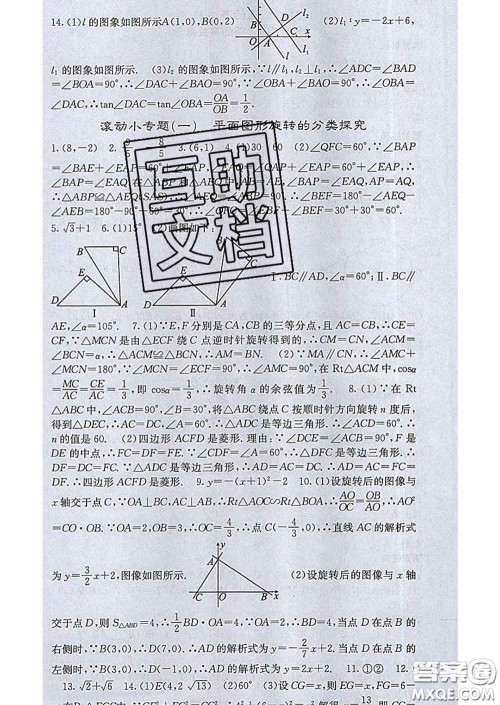 14.(1)l的图象如图所示A(1,0),B(0,2) (2)l₁:y=-2x+6,
l₁的图象如图所示. (3)l₂的图象如图所示,∵l∥l₁,l₂⊥l₁,∴∠ADC=∠BAD
=∠BOA=90°,∴∠DAC+∠BAO=90°,∠BAO+∠OBA=90°,∴∠OBA=
∠DAC,∴tan∠DAC=tan∠OBA=OA/OB=1/2.
滚动小专题(一) 平面图形旋转的分类探究
1.(8,-2) 2. 3.(6,1) 30 60 (2)∠QFC=60°,∵∠BAP
=∠BAE+∠EAP=60°+∠EAP,∠EAQ= =60°+∠EAP,
∴∠BAP=∠EAQ.在△ABP和△AEQ中,AB=AE,∠BAP=∠EAQ,AP=AQ,
∴△ABP≌△AEQ(SAS),∴∠AEQ=∠ABP=90°,∴∠BEF=180°-∠AEQ-
∠AEB=180°-90°-60°=30°. =∠EBF+∠BEF=30°+30°=60°.
5.√3+1 6.(1)15° (2)画图如下:
B C E D A Ⅰ
E D A Ⅱ
Ⅰ:BC∥AD,∠α=60°;Ⅱ:BC∥
AE,∠α=105°. 7.(1)∵E,F分别是CA,CB的三等分点,且AC=CB,∴CE=
CF,∵△MCN是由△ECF绕C点逆时针旋转得到的,∴CM=CN,∠ACM=
∠BCN=α,∴△ACM≌△BCN,∴AM=BN. (2)∵MA∥CN,∴∠AMC+
∠MCN=180°,∵∠MCN=∠ECF=90°,∴∠AMC=90°,在Rt△ACM中,cosα
=MC/AC=CE/AC=1/3,即cosα=1/3,∴旋转角α的余弦值为1/3. 8.(1)∵在Rt
△ABC中,∠ACB=90°,∠B=30°,将△ABC绕点C按顺时针方向旋转n度后,
得到△DEC,∴AC=DC,∠A=60°,∴△ADC是等边三角形,∴∠ACD=60°,∴
n的值是60. (2)四边形ACFD是菱形.理由:∵∠DCE=∠ACB=90°,F是
DE的中点,∴FC=DF=FE.∵∠CDF=∠A=60°,∴△DFC是等边三角形,∴
DF=DC=FC.∵△ADC是等边三角形,∴AD=AC=DC.∴AD=AC=FC=
DF.∴四边形ACFD是菱形. 9.y=-(x+1)²-2 10.(1)设旋转后的图像与
x轴交于点C,∵OA⊥BC,AC⊥AB,∴Rt△AOC∽Rt△BOA,∴AO/OC=OB/AO,∴AO²
=CO·OB.∵OA=2,OB=3,∴OC=4/3,∴点C(-4/3,0),∴直线AC的解析式
为y=3/2x+2,图像如图所示. (2)设旋转后的图像与x轴
交于点D,则S△ABD=4,∴1/2BD·OA=4,∵OA=2,∴BD=4,当点D在点B的
右侧时,∵B(3,0),∴D(7,0).∴AD的解析式为y=-2/7x+2.当点D在点B的
左侧时,∵B(3,0),∴D(-1,0),∴AD的解析式为y=2x+2. 11.①② 12.
13.√2+√6 14.(1)E(4,2√13) (2)60° (3)设CG=x,则EG=x,FG=6
互助文档
答案圈
MXQE.COM